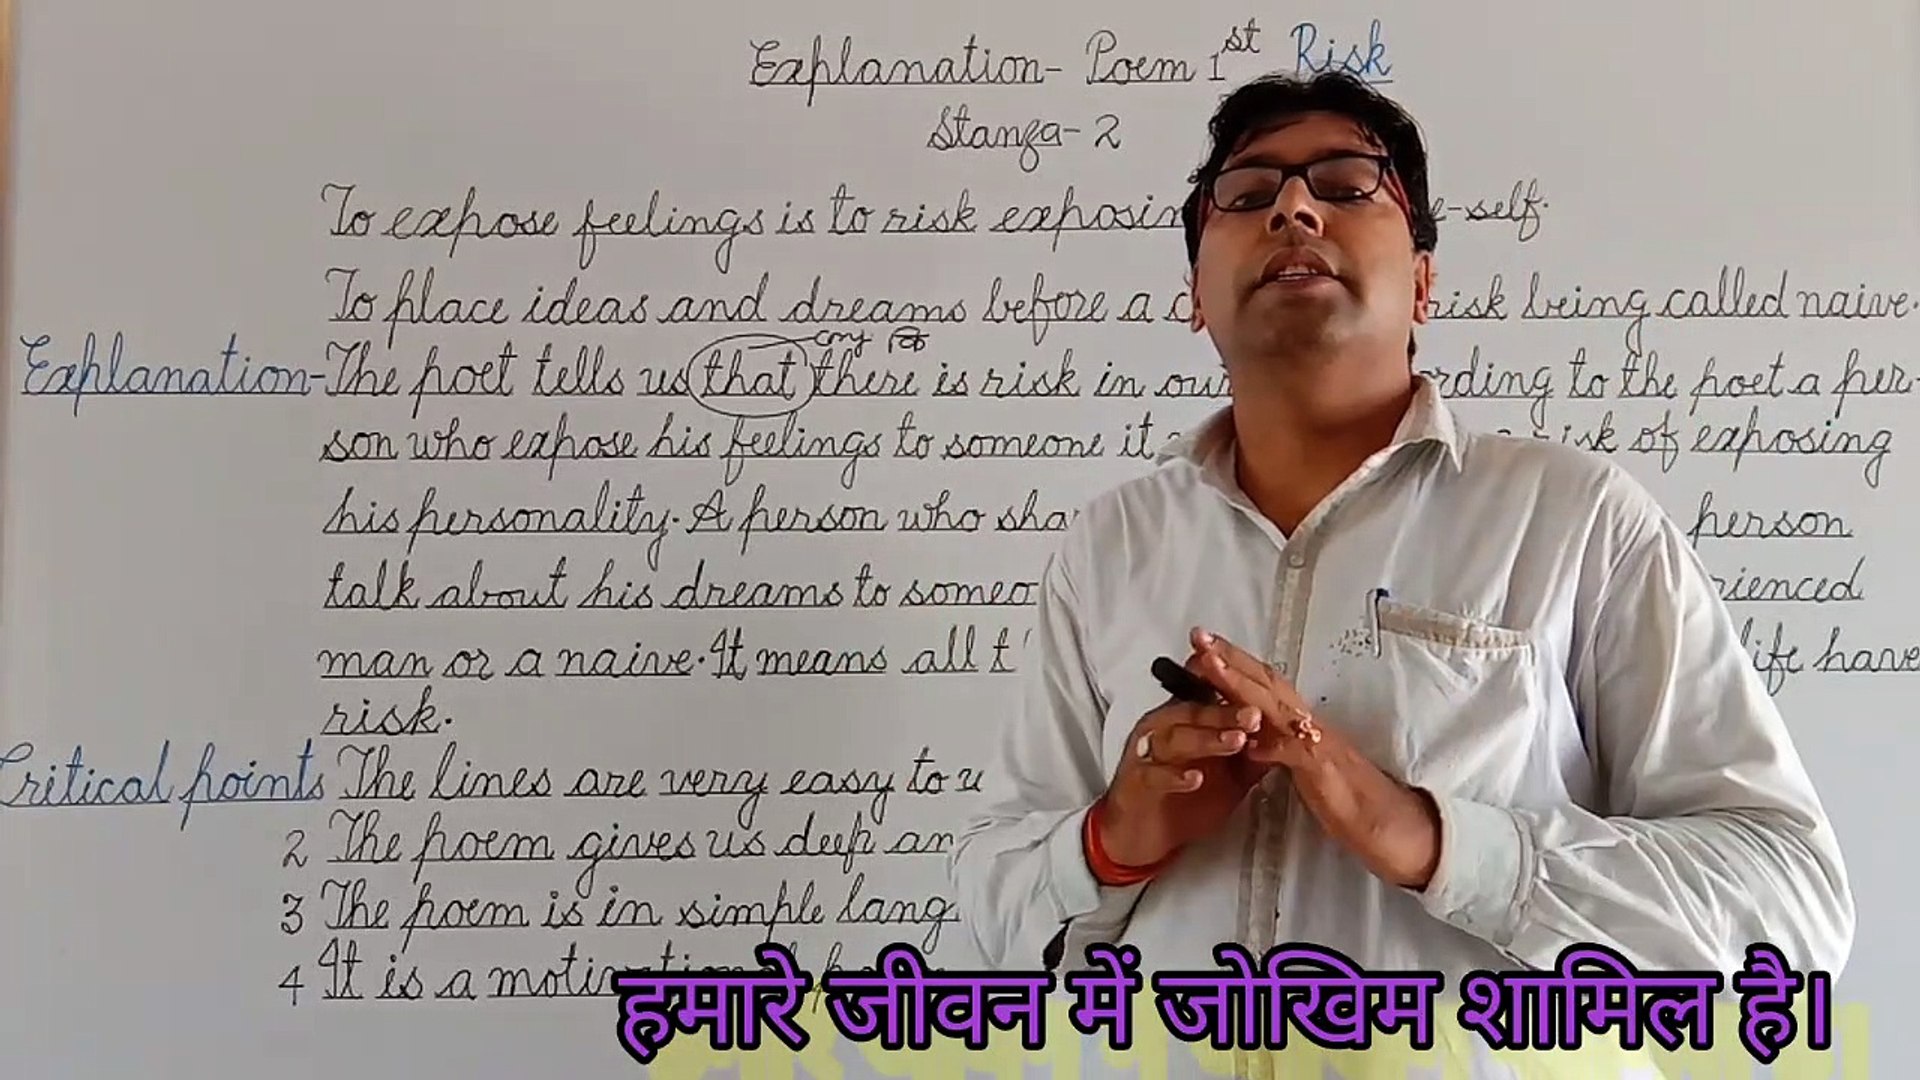 Explanation- Poem 1st Risk
Stanza- 2
To expose feelings is to risk -self.
To place ideas and dreams before a risk being called naive.
conj कि
Explanation- The poet tells us that there is risk in to the poet a per-
son who expose his feelings to someone it risk of exposing
his personality. A person who person
talk about his dreams to
man or a naive. It means all life have
risk.
Critical points The lines are very easy to
2 The poem gives us deep
3 The poem is in simple
4 It is a
हमारे जीवन में जोखिम शामिल है।